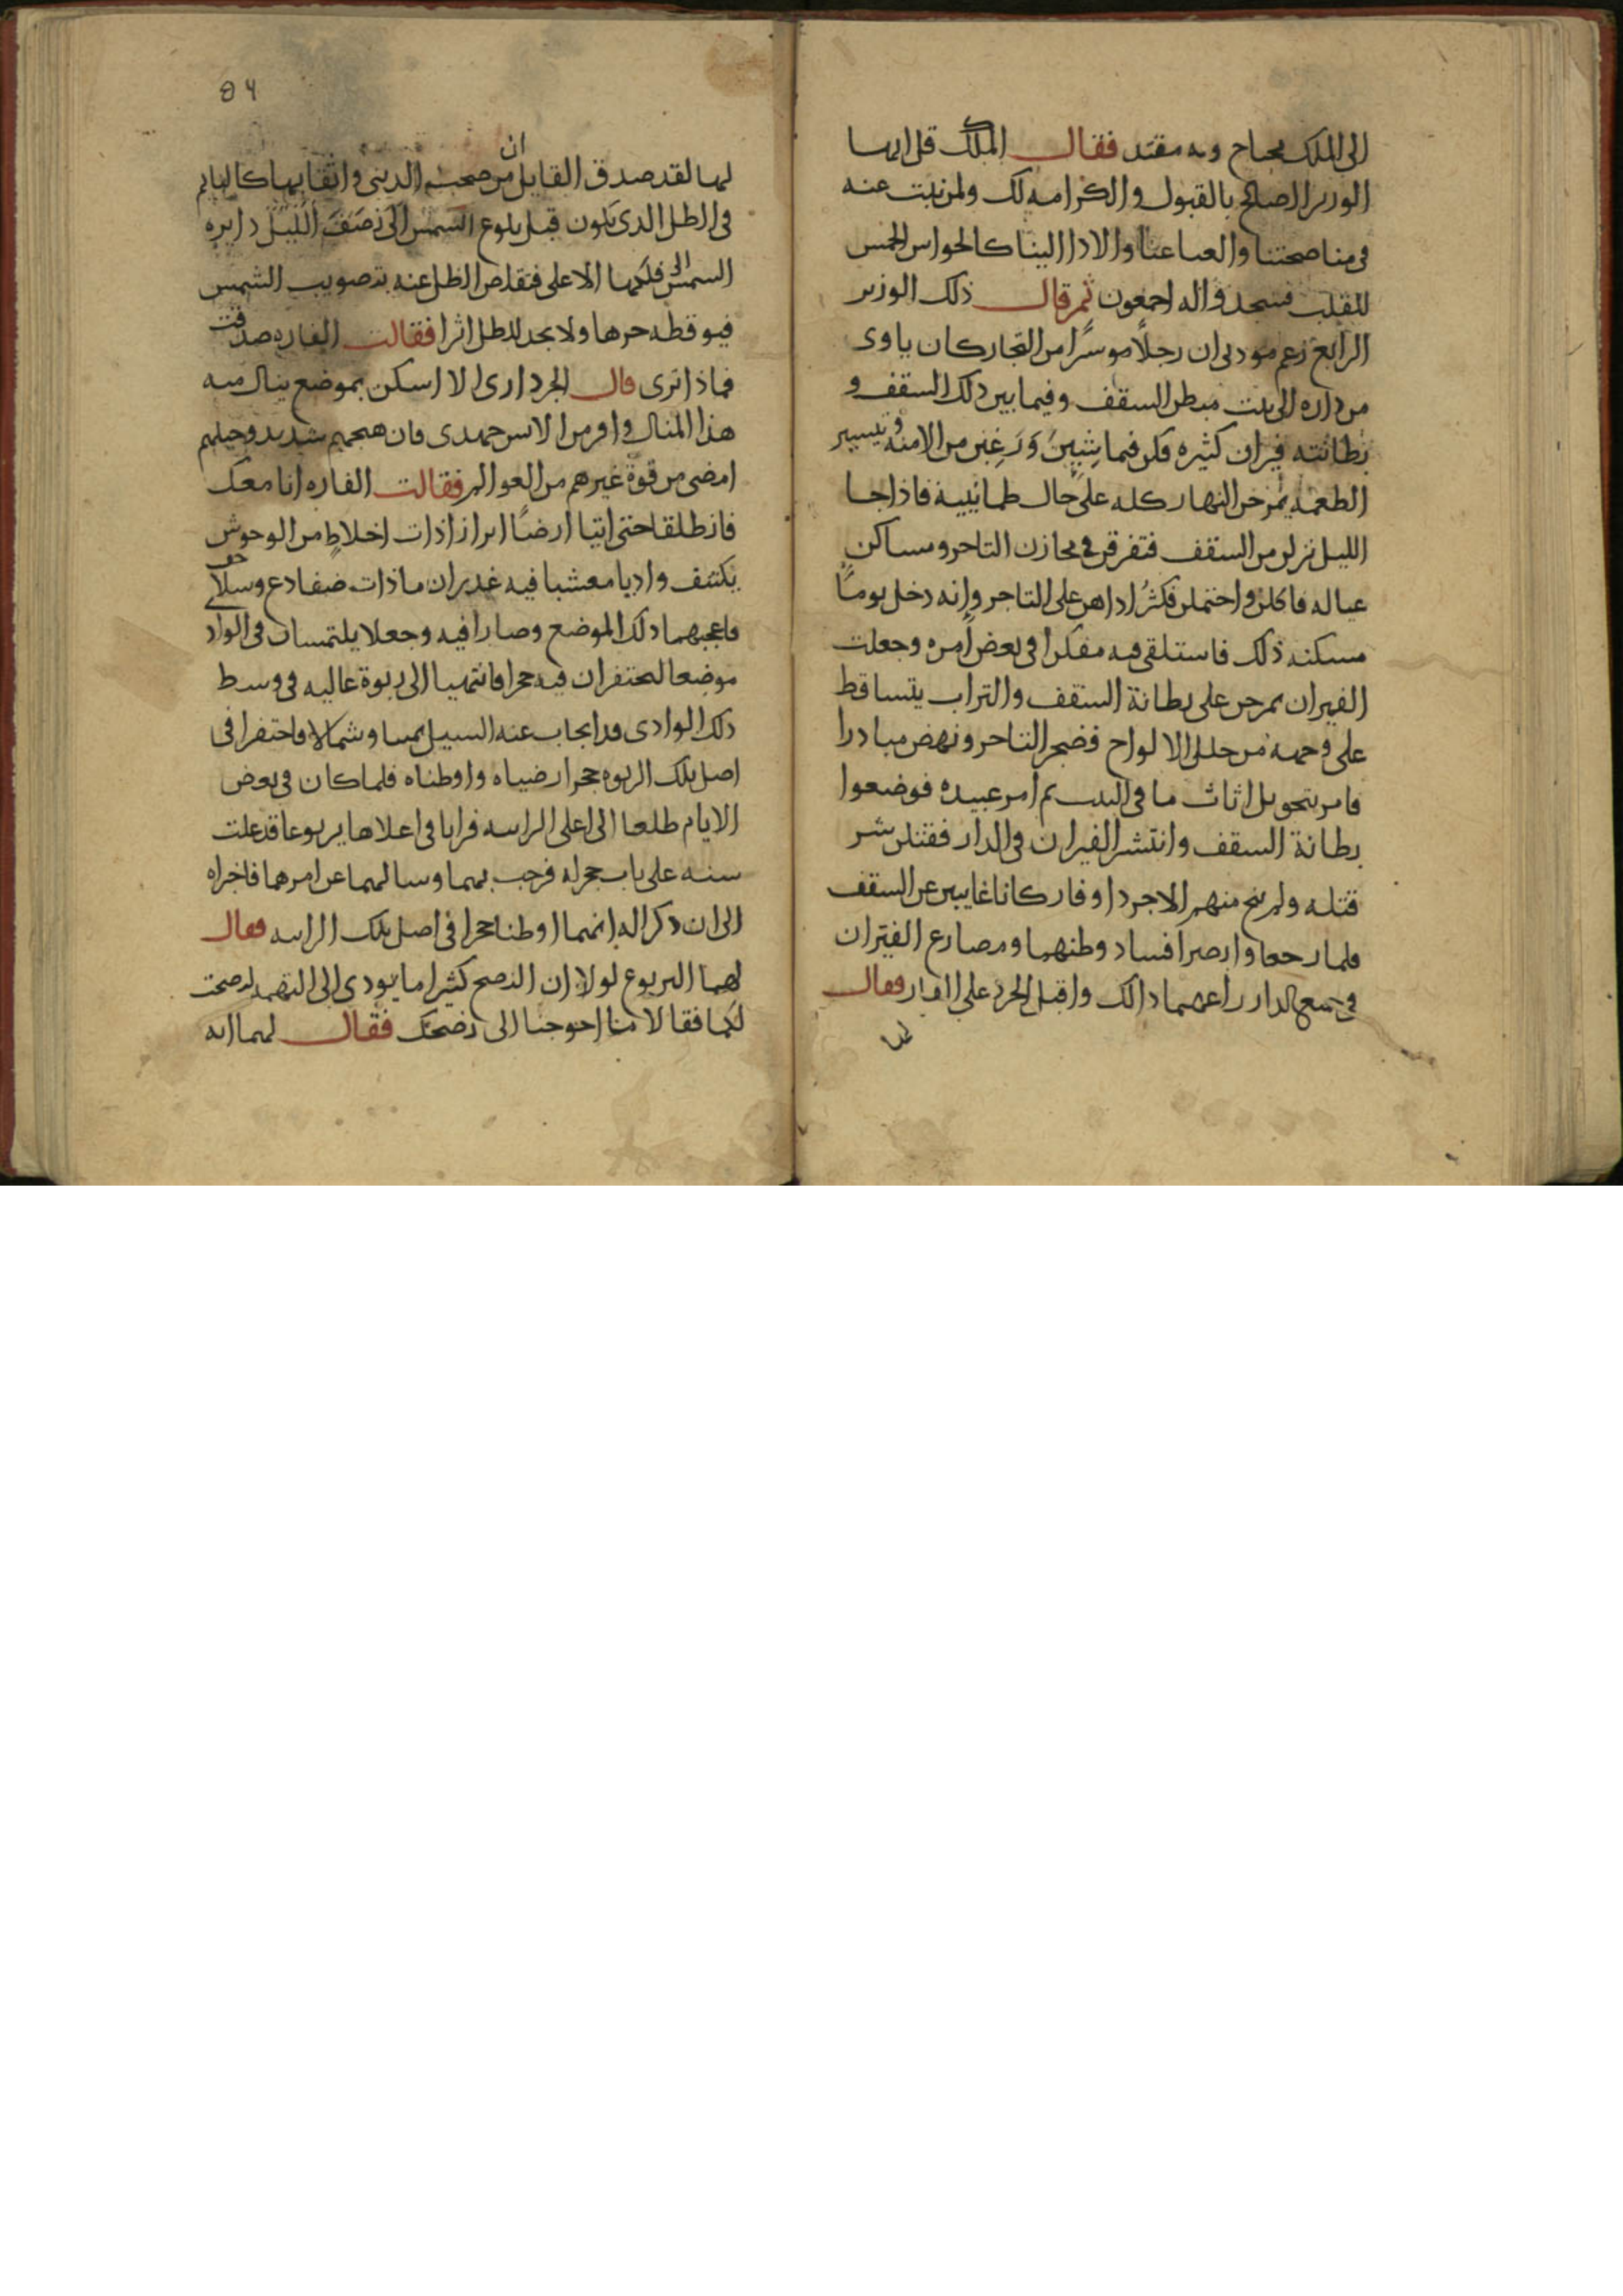 الى الملك محتاج وبه مقتد فقال الملك قل ايها
الوزير الصالح بالقبول والكرامه لك ولمن نبت عنه
فى مناصحتنا والعباعنا والادا الينا كالحواس الخمس
للقلب فسجدوا له اجمعون ثم قال ذلك الوزير
الرابع زعم مودبى ان رجلًا موسرًا من التجار كان ياوى
من داره الى بيت مبطن السقف وفيما بين ذلك السقف و
بطانته فيران كثيره فكن فيما يشين ورغبن من الامنه وتيسير
الطعمه يمرحن النهار كله على حال طمانينة فاذا جا
الليل نزلن من السقف فتفرقن فى مخازن التاجر ومساكن
عياله فاكلن واحتملن فكثُر اذاهن على التاجر وانه دخل يومًا
مسكنه ذلك فاستلقى فيه مفكرا فى بعض امره وجعلت
الفيران يمرحن على بطانة السقف والتراب يتساقط
على وجهه من خلل الالواح فضجر التاجر ونهض مبادرا
فامر بتحويل اثاث ما فى البيت ثم امر عبيده فوضعوا
بطانة السقف وانتشر الفيران فى الدار فقتلن شر
قتله ولم ينج منهم الا جرذا وفار كانا غايبين عن السقف
فلما رجعا وابصرا فساد وطنهما ومصارع الفيران
فى جميع الدار راعهما ذالك واقبل الجرذ على الفار فقال
لها
٥٤
لها لقد صدق القايل ان من صحب الدنيا واثقا بها كالنايم
فى الظل الذى يكون قبل بلوع الشمس الى نصف الليل دايره
السمس الى فلكها الاعلى فتقلص الظل عنه بتصويب الشمس
فيوقظه حرها ولا يجد للظل اثرا فقالت الفاره صدقت
فماذا ترى قال الجرذ ارى الا اسكن بموضع ينال منه
هذا المنال وافر من الانس جهدى فان هجمهم شديد وحيلهم
امضى من قوة غيرهم من العوالم فقالت الفاره انا معك
فانطلقا حتى اتيا ارضًا ابرازا ذات اخلاطٍ من الوحوش
يكتنف واديا معشبا فيه غدران ما ذات ضفادع وسلاحف
فاعجبهما ذلك الموضع وصارا فيه وجعلا يلتمسان فى الواد
موضعا لحتفران فيه حجرا فانتهيا الى ربوة عاليه فى وسط
ذلك الوادى قد انجاب عنه السيل يمينا وشمالا فاحتفرا فى
اصل تلك الربوه جحرا رضياه واوطناه فلما كان فى بعض
الايام طلعا الى اعلى الرابيه فرايا فى اعلاها يربوعا قد علت
سنه على باب جحر له فرحب بهما وسالهما عن امرهما فاخبراه
الى ان ذكرا له انهما اوطنا حجرا فى اصل تلك الرابيه فقال
لهما اليربوع لولا ان النصح كثيرا ما يودى الى التهمه لنصحت
لكما فقالا ما احوجنا الى نصحك فقال لهما انه